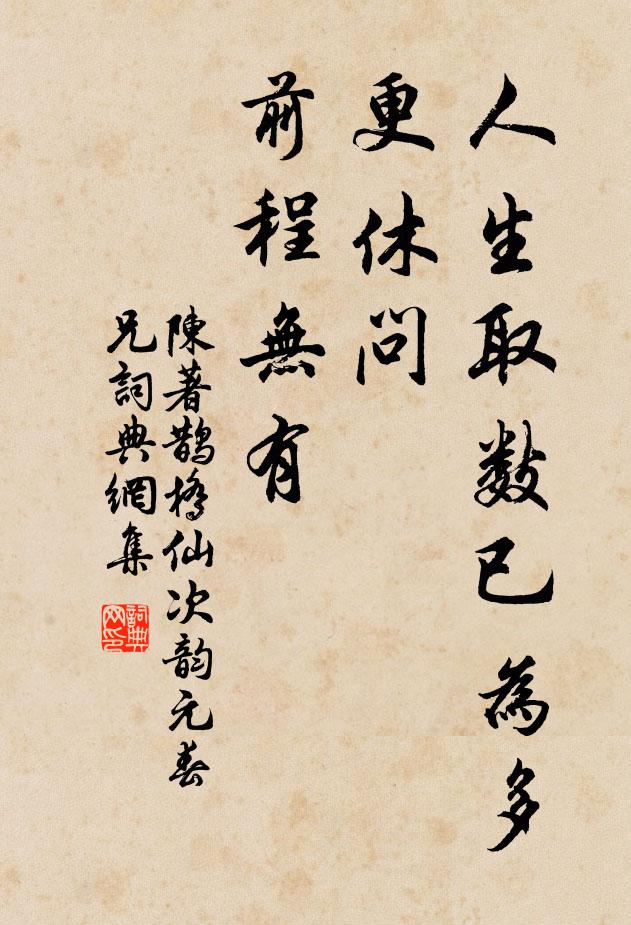 人生取数已為多
更休問
前程無有
陳著鵲橋仙次韵元春
兄詞典網集
詞典网印